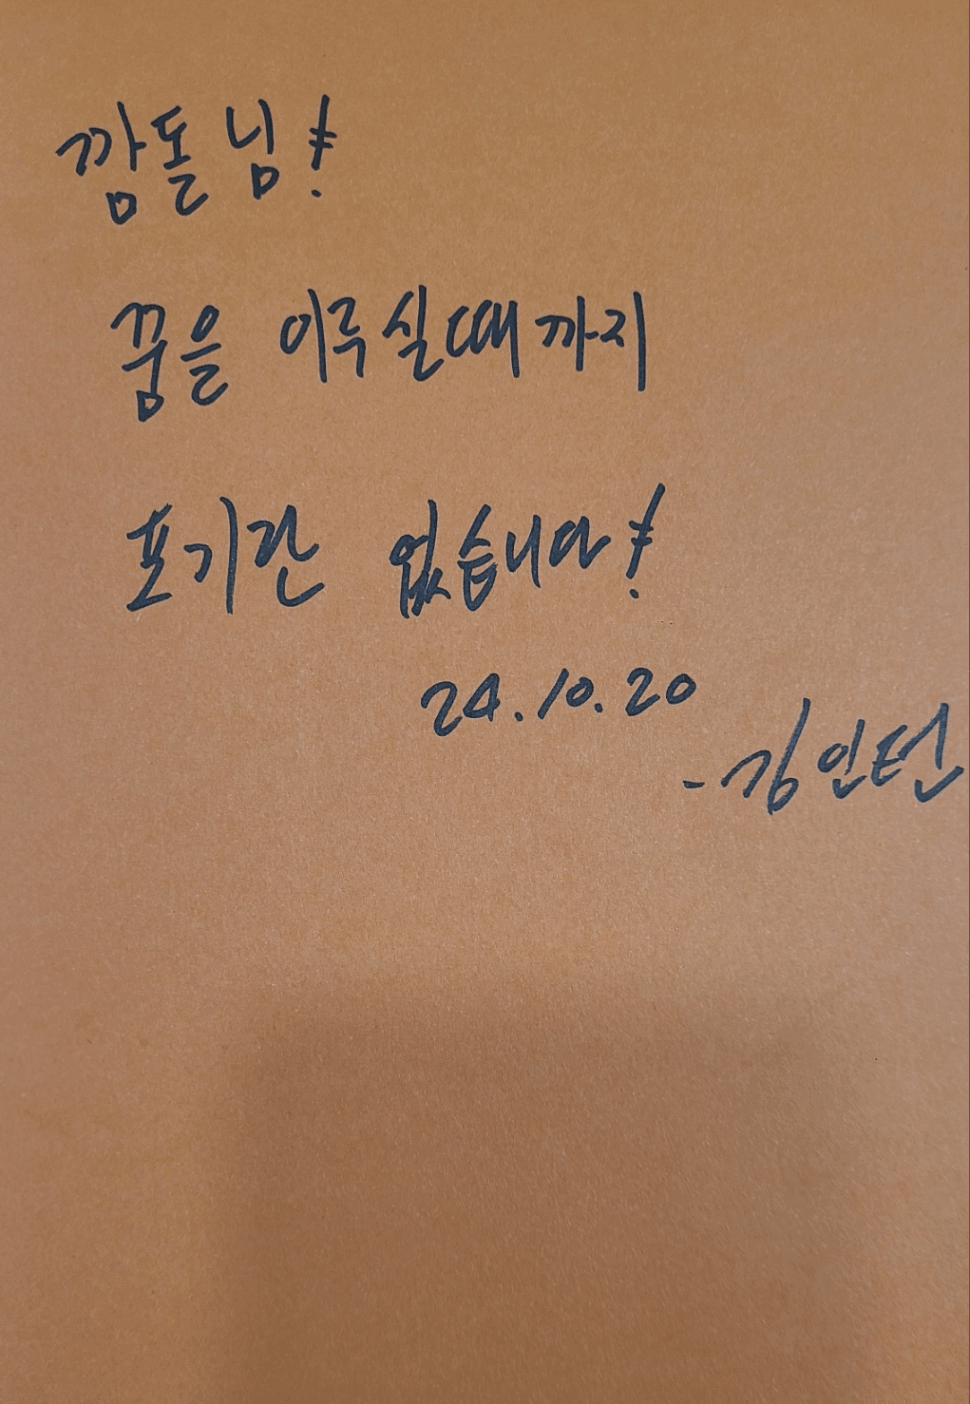 깜돌님!
꿈을 이루실때까지
포기란 없습니다!
24.10.20
-김인턴